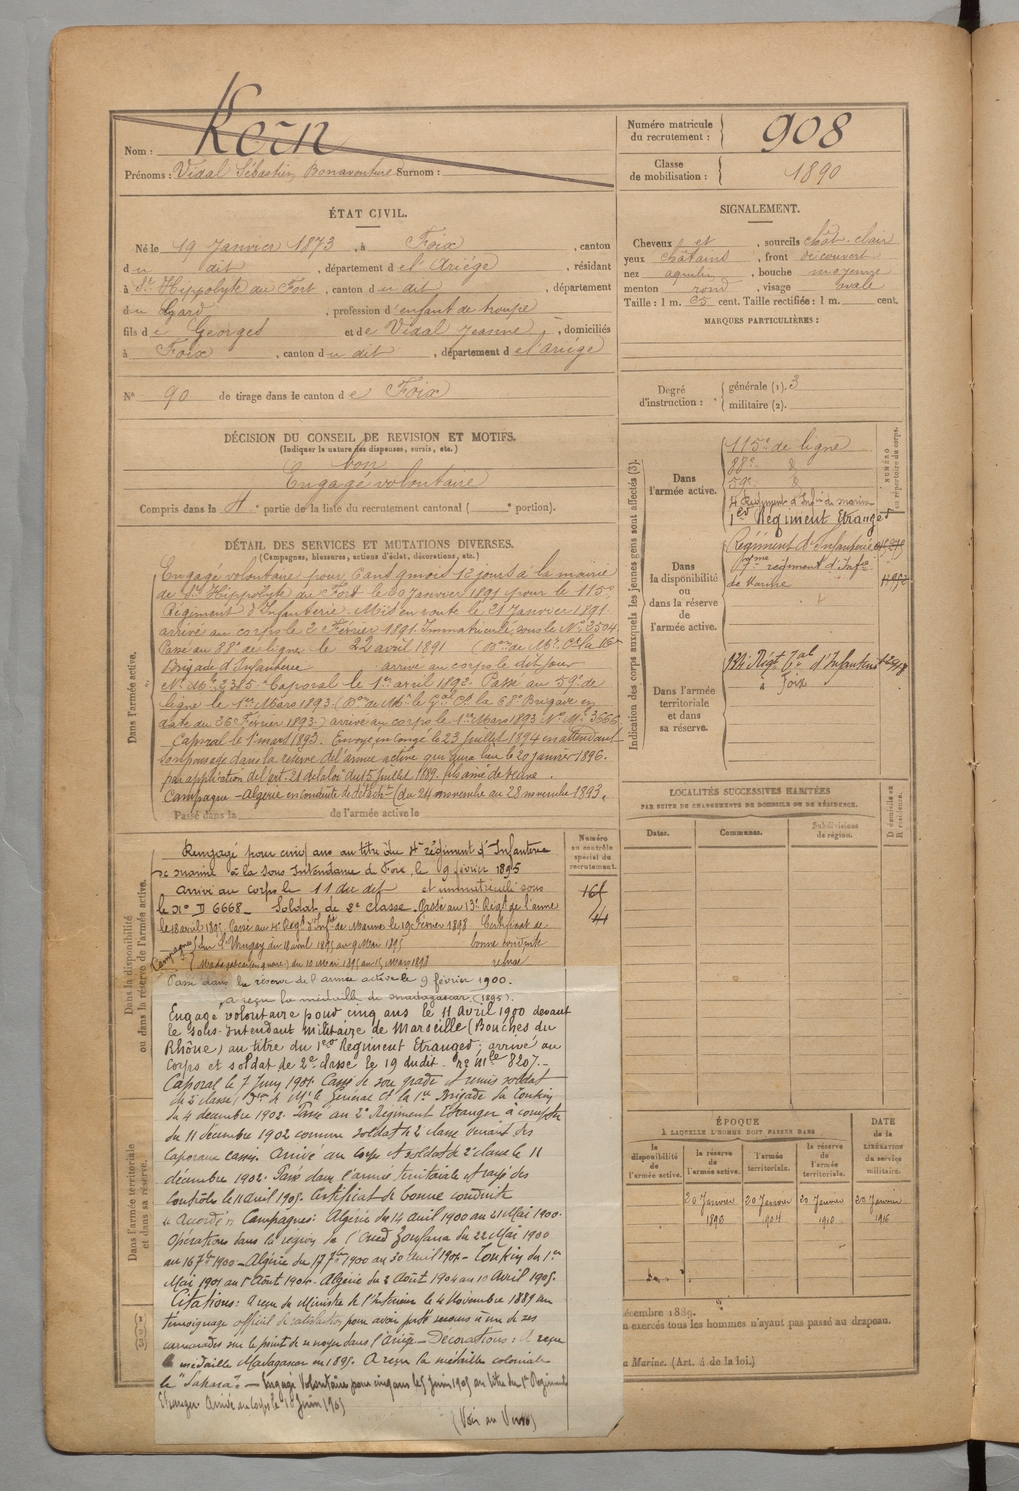 Nom : Kern
Prénoms : Vidal Sébastien Bonaventure Surnom :
Numéro matricule du recrutement : 908
Classe de mobilisation : 1890
ÉTAT CIVIL.
Né le 19 Janvier 1873, à Foix, canton
du dit, département de l'Ariège, résidant
à St Hippolyte du Fort, canton du dit, département
du Gard, profession d'enfant de troupe
fils de Georges et de Vidal Jeanne, domiciliés
à Foix, canton du dit, département de l'Ariège
N° 90 de tirage dans le canton de Foix
SIGNALEMENT.
Cheveux et, sourcils chât. clair
yeux châtains, front découvert
nez aquilin, bouche moyenne
menton rond, visage ovale
Taille : 1 m. 65 cent. Taille rectifiée : 1 m. cent.
MARQUES PARTICULIÈRES :
Degré d'instruction : générale (1). 3
militaire (2).
DÉCISION DU CONSEIL DE REVISION ET MOTIFS.
(Indiquer la nature des dispenses, sursis, etc.)
bon
Engagé volontaire
Compris dans la 4e partie de la liste du recrutement cantonal ( e portion).
DÉTAIL DES SERVICES ET MUTATIONS DIVERSES.
(Campagnes, blessures, actions d'éclat, décorations, etc.)
Dans l'armée active.
Engagé volontaire pour 6 ans 9 mois 12 jours à la mairie
de St Hippolyte du Fort le 20 Janvier 1891 pour le 115e
Régiment d'Infanterie. Mis en route le 21 Janvier 1891.
arrivé au corps le 2 Février 1891. Immatriculé sous le N° 2504.
Passé au 88e de ligne le 22 avril 1891
Brigade d'Infanterie arrivé au corps le dit jour
N° Mle 2315. Caporal le 1er avril 1892. Passé au 59e de
ligne le 1er Mars 1893. la 68e Brigade en
date du 26 Février 1893.) arrivé au corps le 1er Mars 1893 N° Mle 3666.
Caporal le 1er mars 1893. Envoyé en congé le 23 Juillet 1894 en attendant
son passage dans la réserve de l'armée active qui aura lieu le 20 janvier 1896.
par application de l'art. 21 de la loi du 15 juillet 1889. fils aîné de veuve.
Campagne - Algérie en conduite de détacht (du 24 novembre au 28 novembre 1893.
Passé dans la de l'armée active le
Dans la disponibilité ou dans la réserve de l'armée active.
Rengagé pour cinq ans au titre du 4e régiment d'Infanterie
de marine à la sous Intendance de Foix, le 9 février 1895
arrivé au corps le 11 du dit et immatriculé sous
le N° D 6668 - Soldat de 2e classe. Passé au 13e Régt de l'arme
le 18 avril 1895. Passé au 4e Régt d'Inft de Marine le 19 Février 1898 Certificat de
du 18 avril 1895 au 9 Mai 1895 bonne conduite
Campagnes Madagascar (en guerre) du 10 Mai 1895 au 15 Mars 1898 refusé
Numéro au contrôle spécial du recrutement.
165
44
Passé dans la réserve de l'armée active le 9 février 1900.
A reçu la médaille de Madagascar (1895).
Engagé volontaire pour cinq ans le 11 Avril 1900 devant
le sous-intendant militaire de Marseille (Bouches du
Rhône) au titre du 1er Régiment Etranger ; arrivé au
Corps et soldat de 2e classe le 19 du dit. N° Mle 8207.-
Caporal le 7 Juin 1901. Cassé de son grade et remis soldat
de 2e classe, de Mr le Général Ct la 1re Brigade du Tonkin
du 4 décembre 1902. Passé au 2e Régiment Etranger à compter
du 11 décembre 1902 comme soldat de 2e classe venant des
Caporaux cassés. Arrivé au corps et soldat de 2e classe le 11
décembre 1902. Passé dans l'armée territoriale et rayé des
Contrôles le 11 avril 1905. Certificat de bonne conduite
"Accordé". Campagnes : Algérie du 14 avril 1900 au 21 Mai 1900.
Opérations dans la région de l'Oued Zousfana du 22 Mai 1900
au 16 7bre 1900 - Algérie du 17 7bre 1900 au 30 avril 1901 - Tonkin du 1er
Mai 1901 au 1er Août 1904. Algérie du 2 Août 1904 au 10 Avril 1905.
Citations : A reçu du Ministre de l'Intérieur le 4 Novembre 1889 un
témoignage officiel de satisfaction pour avoir porté secours à un de ses
camarades sur le point de se noyer dans l'Ariège - Décorations : A reçu
la médaille Madagascar en 1895. A reçu la médaille coloniale
"Sahara". - Engagé Volontaire pour cinq ans le 5 Juin 1905 au titre du 1er Régiment
Etranger Arrivé au Corps le 10 Juin 1905
(Voir au Verso)
Dans l'armée territoriale et dans sa réserve.
Indication des corps auxquels les jeunes gens sont affectés (3).
NUMÉRO au répertoire du corps.
Dans l'armée active.
115e de ligne
88e d
59e d
4 Régiment d'Infie de marine
1er Régiment Etranger
Dans la disponibilité ou dans la réserve de l'armée active.
Régiment d'Infanterie
régiment d'Infie
de Marine
Dans l'armée territoriale et dans sa réserve.
134 Régt Tal d'Infanterie
à Foix
LOCALITÉS SUCCESSIVES HABITÉES
PAR SUITE DE CHANGEMENTS DE DOMICILE OU DE RÉSIDENCE.
Dates. Communes. Subdivisions de région. D domicile ou R résidence.
ÉPOQUE
À LAQUELLE L'HOMME DOIT PASSER DANS
DATE de la LIBÉRATION du service militaire.
la disponibilité de l'armée active. la réserve de l'armée active. l'armée territoriale. la réserve de l'armée territoriale.
20 Janvier 20 Janvier 20 Janvier 20 Janvier
1893 1904 1910 1916
décembre 1889.
n exercés tous les hommes n'ayant pas passé au drapeau.
a Marine. (Art. 4 de la loi.)